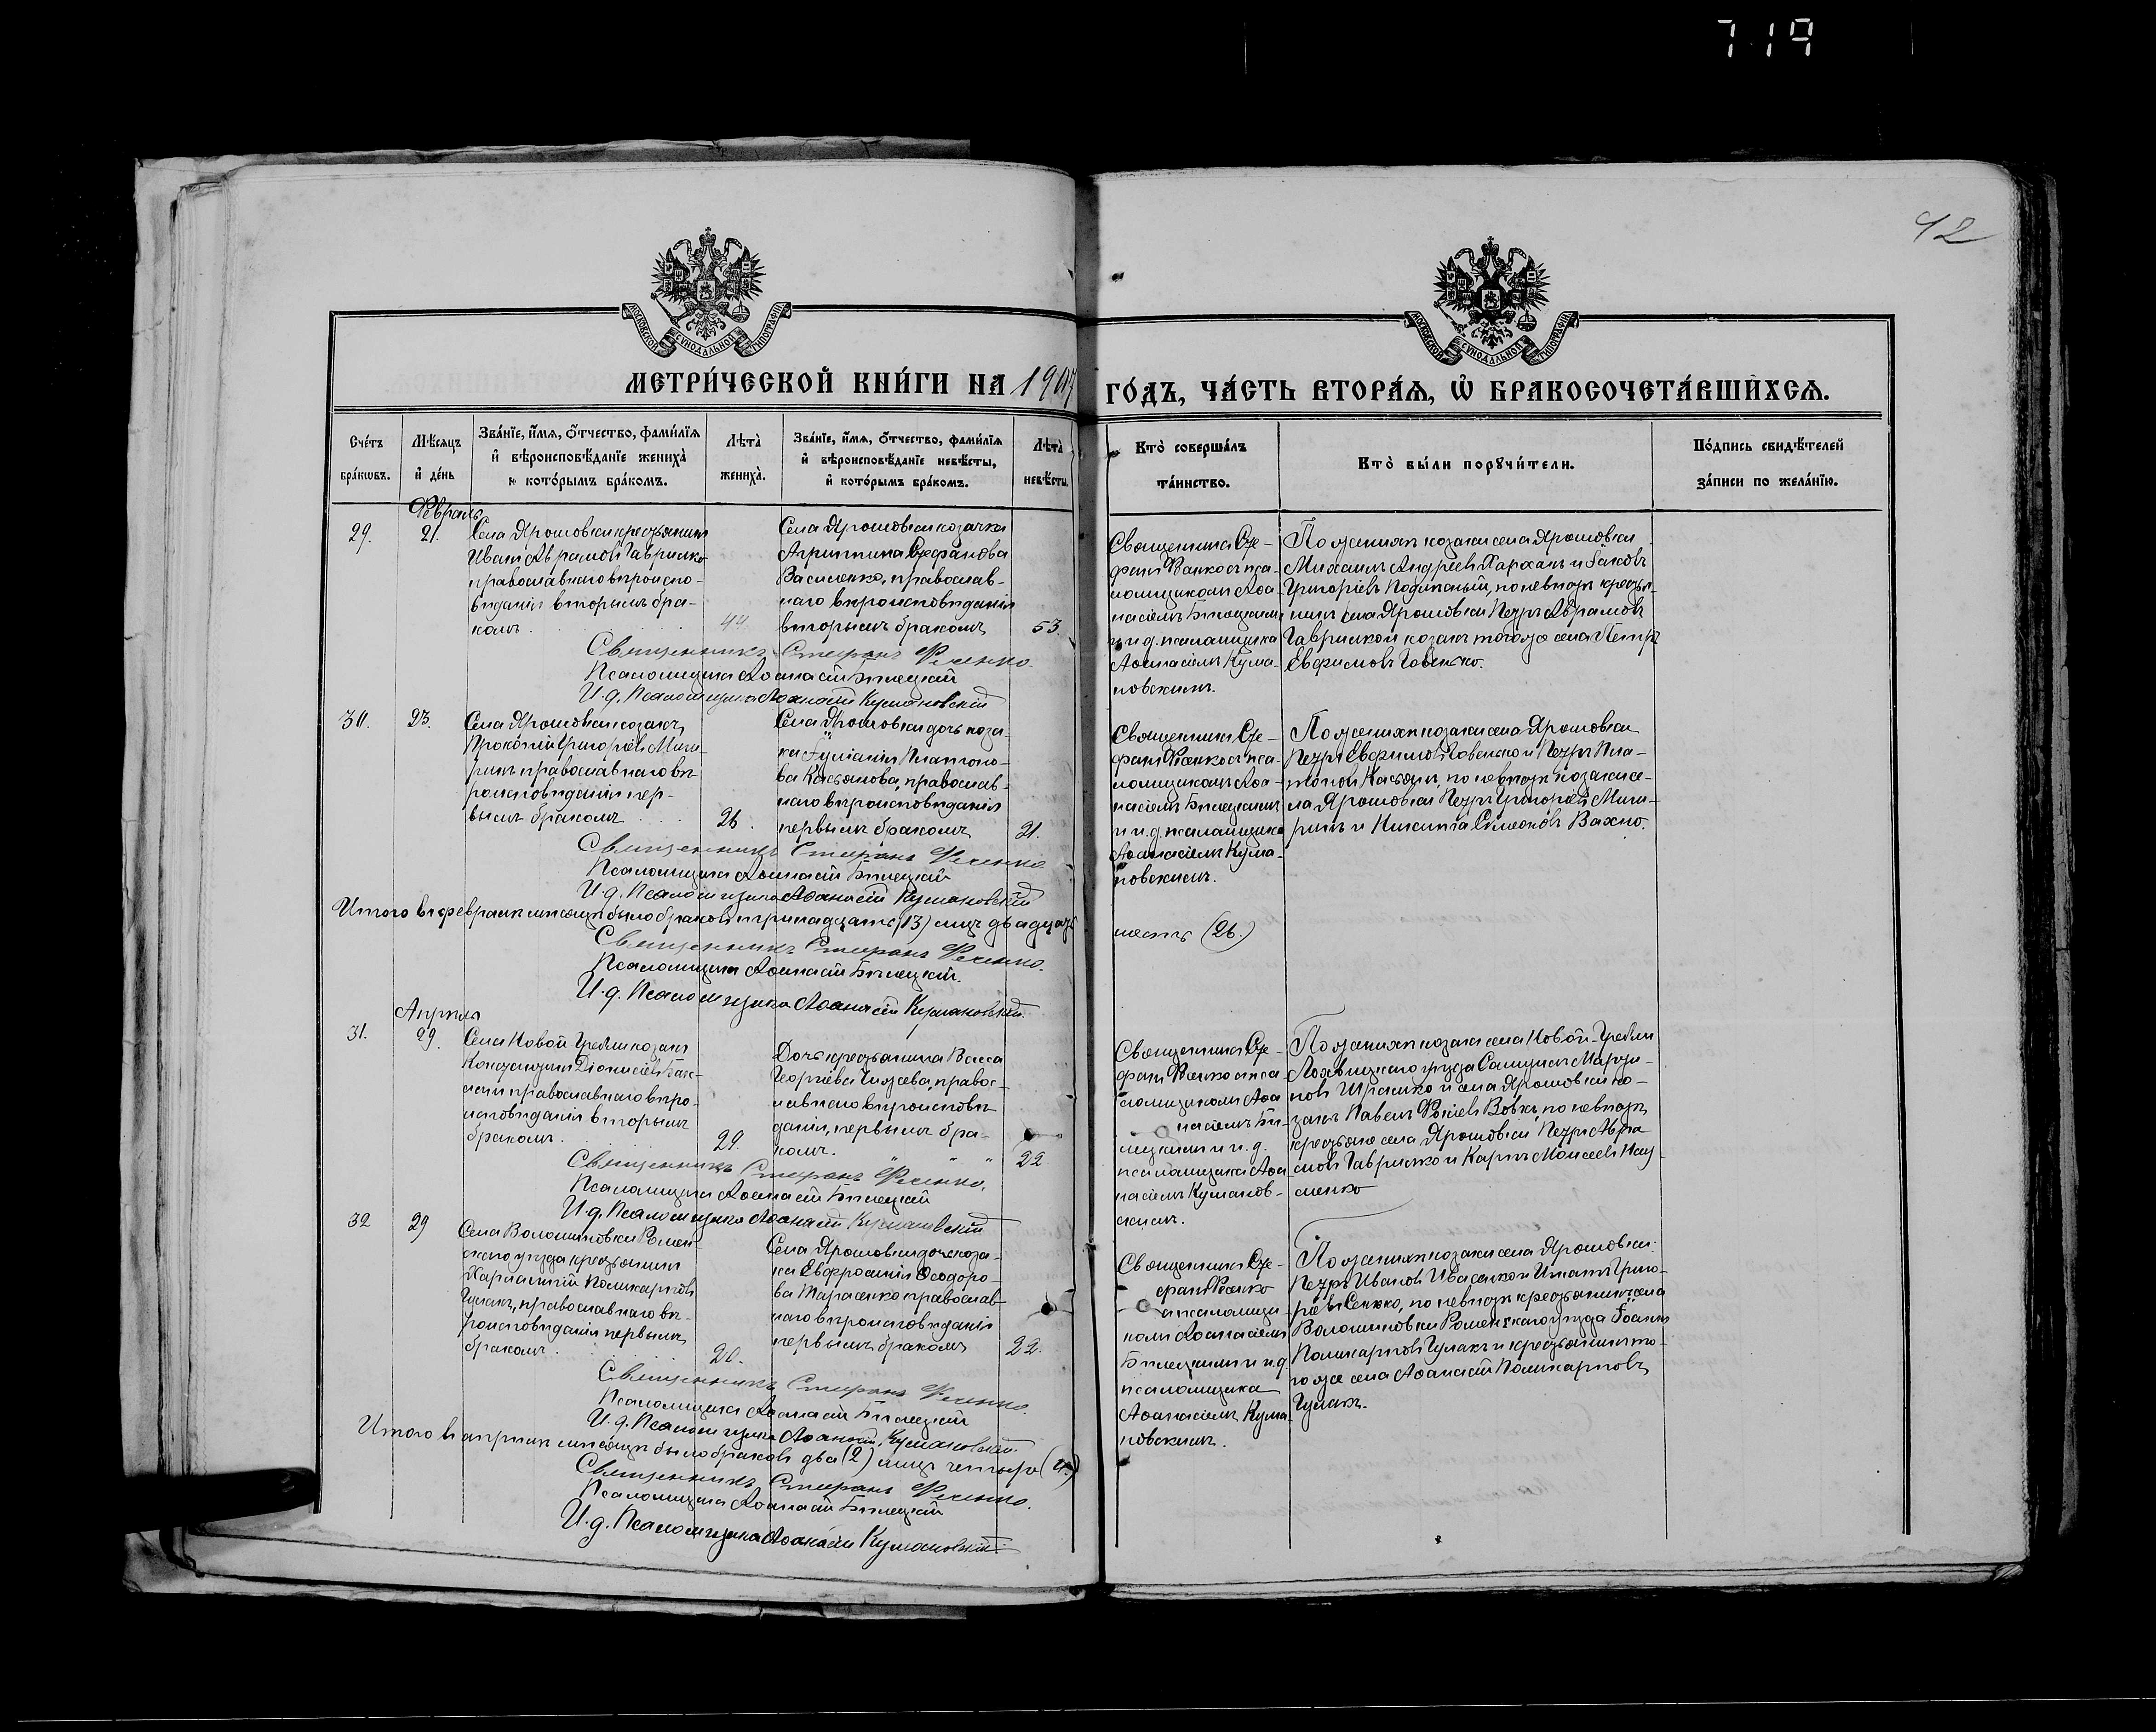 719
42
МОСКОВСКОЙ СѴНОДАЛЬНОЙ ТИПОГРАФІИ
МОСКОВСКОЙ СѴНОДАЛЬНОЙ ТИПОГРАФІИ
МЕТРИ́ЧЕСКОЙ КНИ́ГИ НА 1907 ГО́ДЪ, ЧА́СТЬ ВТОРА́Я, Ѡ҆ БРАКОСОЧЕТА́ВШИХСЯ.
Сче́тъ бра́кѡвъ.
Мѣ́сяцъ и҆ де́нь
Зва́нїе, и҆́мя, ѻ҆́тчество, фами́лїя и҆ вѣроисповѣ́данїе жениха̀ и҆ кото́рымъ бра́комъ.
Лѣта̀ жениха̀.
Зва́нїе, и҆́мя, ѻ҆́тчество, фами́лїя и҆ вѣроисповѣ́данїе невѣ́сты, и҆ кото́рымъ бра́комъ.
Лѣта̀ невѣ́сты.
Кто̀ соверша́лъ та́инство.
Кто̀ бы́ли порꙋчи́тели.
По́дпись свидѣ́телей за́писи по жела́нїю.
Февраль
29.
21.
Села Ярошовки крестьянинъ
Иванъ Аврамовъ Гаврилко
православнаго вѣроиспо-
вѣданія вторымъ бра-
комъ.
44.
Села Ярошовки козачка
Агриппина Стефанова
Василенко, православ-
наго вѣроисповѣданія
вторымъ бракомъ
53.
Священникъ Сте-
фанъ Фесенко съ пса-
ломщикомъ Аѳа-
насіемъ Бѣлецкимъ
и и.д. псаломщика
Аѳанасіемъ Кума-
новскимъ.
По женихѣ козаки села Ярошовки
Михаилъ Андреевъ Харханъ и Іаковъ
Григоріевъ по невѣстѣ крестья-
нинъ села Ярошовки Петръ Аврамовъ
Гаврилко и козакъ того же села Петръ
Евфимовъ Говенько.
Священникъ Стефанъ Фесенко.
Псаломщикъ Аѳанасій Бѣлецкій
И.д. Псаломщика Аѳанасій Кумановскій
30.
23.
Села Ярошовки козакъ
Прокопій Григоріевъ Миги-
ринъ православнаго вѣ-
роисповѣданія пер-
вымъ бракомъ
26.
Села Ярошовки дочь коза-
ка Іуліанія Платоно-
ва Касьянова, православ-
наго вѣроисповѣданія
первымъ бракомъ
21.
Священникъ Сте-
фанъ Фесенко съ пса-
ломщикомъ Аѳа-
насіемъ Бѣлецкимъ
и и.д. псаломщика
Аѳанасіемъ Кума-
новскимъ.
По женихѣ козаки села Ярошовки
Петръ Евфимовъ Говенько и Петръ Пла-
тоновъ Касьянъ, по невѣстѣ козаки се-
ла Ярошовки Петръ Григоріевъ Миги-
ринъ и Никита Симеоновъ Вахно.
Священникъ Стефанъ Фесенко.
Псаломщикъ Аѳанасій Бѣлецкій
И.д. Псаломщика Аѳанасій Кумановскій
Итого въ февралѣ мѣсяцѣ было браковъ тринадцать (13) лицъ двадцать
шесть (26.)
Священникъ Стефанъ Фесенко.
Псаломщикъ Аѳанасій Бѣлецкій.
И.д. Псаломщика Аѳанасій Кумановскій.
Апрѣль
31.
29.
Села Новой Гребли козакъ
Константинъ Діонисіевъ
православнаго вѣро-
исповѣданія вторымъ
бракомъ.
29.
Дочь крестьянина Васса
Георгіева правос-
лавнаго вѣроисповѣ-
данія, первымъ бра-
комъ.
22
Священникъ Сте-
фанъ Фесенко съ пса-
ломщикомъ Аѳа
насіемъ Бѣ-
лецкимъ и и.д.
псаломщика Аѳа
насіемъ Куманов-
скимъ.
По женихѣ козаки села Новой-Гребли
Лохвицкаго уѣзда Марти-
новъ и села Ярошовки ко-
закъ Павелъ Вовкъ, по невѣстѣ
крестьяне села Ярошовки Петръ Авра
мовъ Гаврилко и Карпъ Моисеевъ Нау
менко
Священникъ Стефанъ Фесенко.
Псаломщикъ Аѳанасій Бѣлецкій
И.д. Псаломщика Аѳанасій Кумановскій
32
29
Села Волошиновки Ромен-
скаго уѣзда крестьянинъ
Харлампій Поликарповъ
Гулакъ, православнаго вѣ-
роисповѣданія первымъ
бракомъ.
20.
Села Ярошовки дочь коза-
ка Евфросинія Ѳеодоро-
ва Тарасенко православ-
наго вѣроисповѣданія
первымъ бракомъ
22.
Священникъ Сте-
фанъ Фесенко
съ псаломщи-
комъ Аѳанасіемъ
Бѣлецкимъ и и.д.
псаломщика
Аѳанасіемъ Кума-
новскимъ.
По женихѣ козаки села Ярошовки:
Петръ Ивановъ Ивасенко и Игнатъ Григо-
ріевъ Сенько, по невѣстѣ крестьянинъ села
Волошиновки Роменскаго уѣзда Іоаннъ
Поликарповъ Гулакъ и крестьянинъ то-
го же села Аѳанасій Поликарповъ
Гулакъ.
Священникъ Стефанъ Фесенко.
Псаломщикъ Аѳанасій Бѣлецкій
И.д. Псаломщика Аѳанасій Кумановскій.
Итого въ апрѣлѣ мѣсяцѣ было браковъ два (2) лицъ четыре (4)
Священникъ Стефанъ Фесенко.
Псаломщикъ Аѳанасій Бѣлецкій
И.д. Псаломщика Аѳанасій Кумановскій.